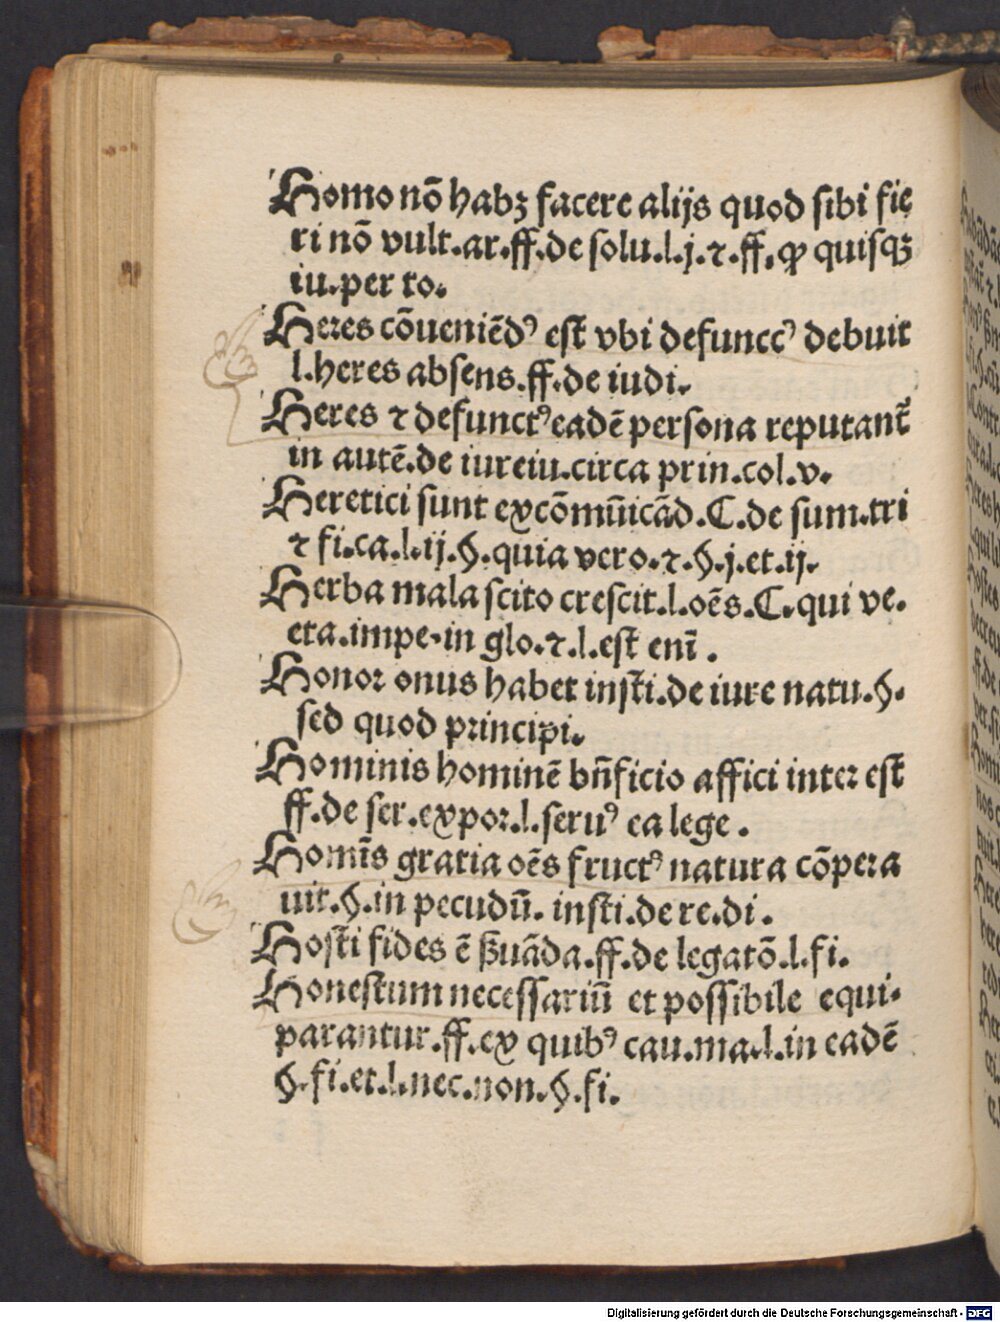 Homo nõ habꝫ facere alijs quod sibi fie
ri nõ vult.ar.ff.de solu.l.j.⁊.ff.ꝙ quisqꝫ
iu.per to.
Heres cõueniẽdꝰ est vbi defunccꝰ debuit
l.heres absens.ff.de iudi.
Heres ⁊ defunctꝰ eadẽ persona reputant᷑
in autẽ.de iureiu.circa prin.col.v.
Heretici sunt excõmũicãd.C.de sum.tri
⁊ fi.ca.l.ij.§.quia vero.⁊.§.j.et.ij.
Herba mala scito crescit.l.oẽs.C.qui ve.
eta.impe.in glo.⁊.l.est enĩ.
Honor onus habet insti.de iure natu.§.
sed quod principi.
Hominis hominẽ bñficio affici inter est
ff.de ser.expor.l.seruꝰ ea lege.
Homĩs gratia oẽs fructꝰ natura cõpera
uit.§.in pecudũ. insti.de re.di.
Hosti fides ẽ ẞuãda.ff.de legatõ.l.fi.
Honestum necessariũ et possibile equi-
parantur.ff.ex quibꝰ cau.ma.l.in eadẽ
§.fi.et.l.nec.non.§.fi.
Digitalisierung gefördert durch die Deutsche Forschungsgemeinschaft - DFG